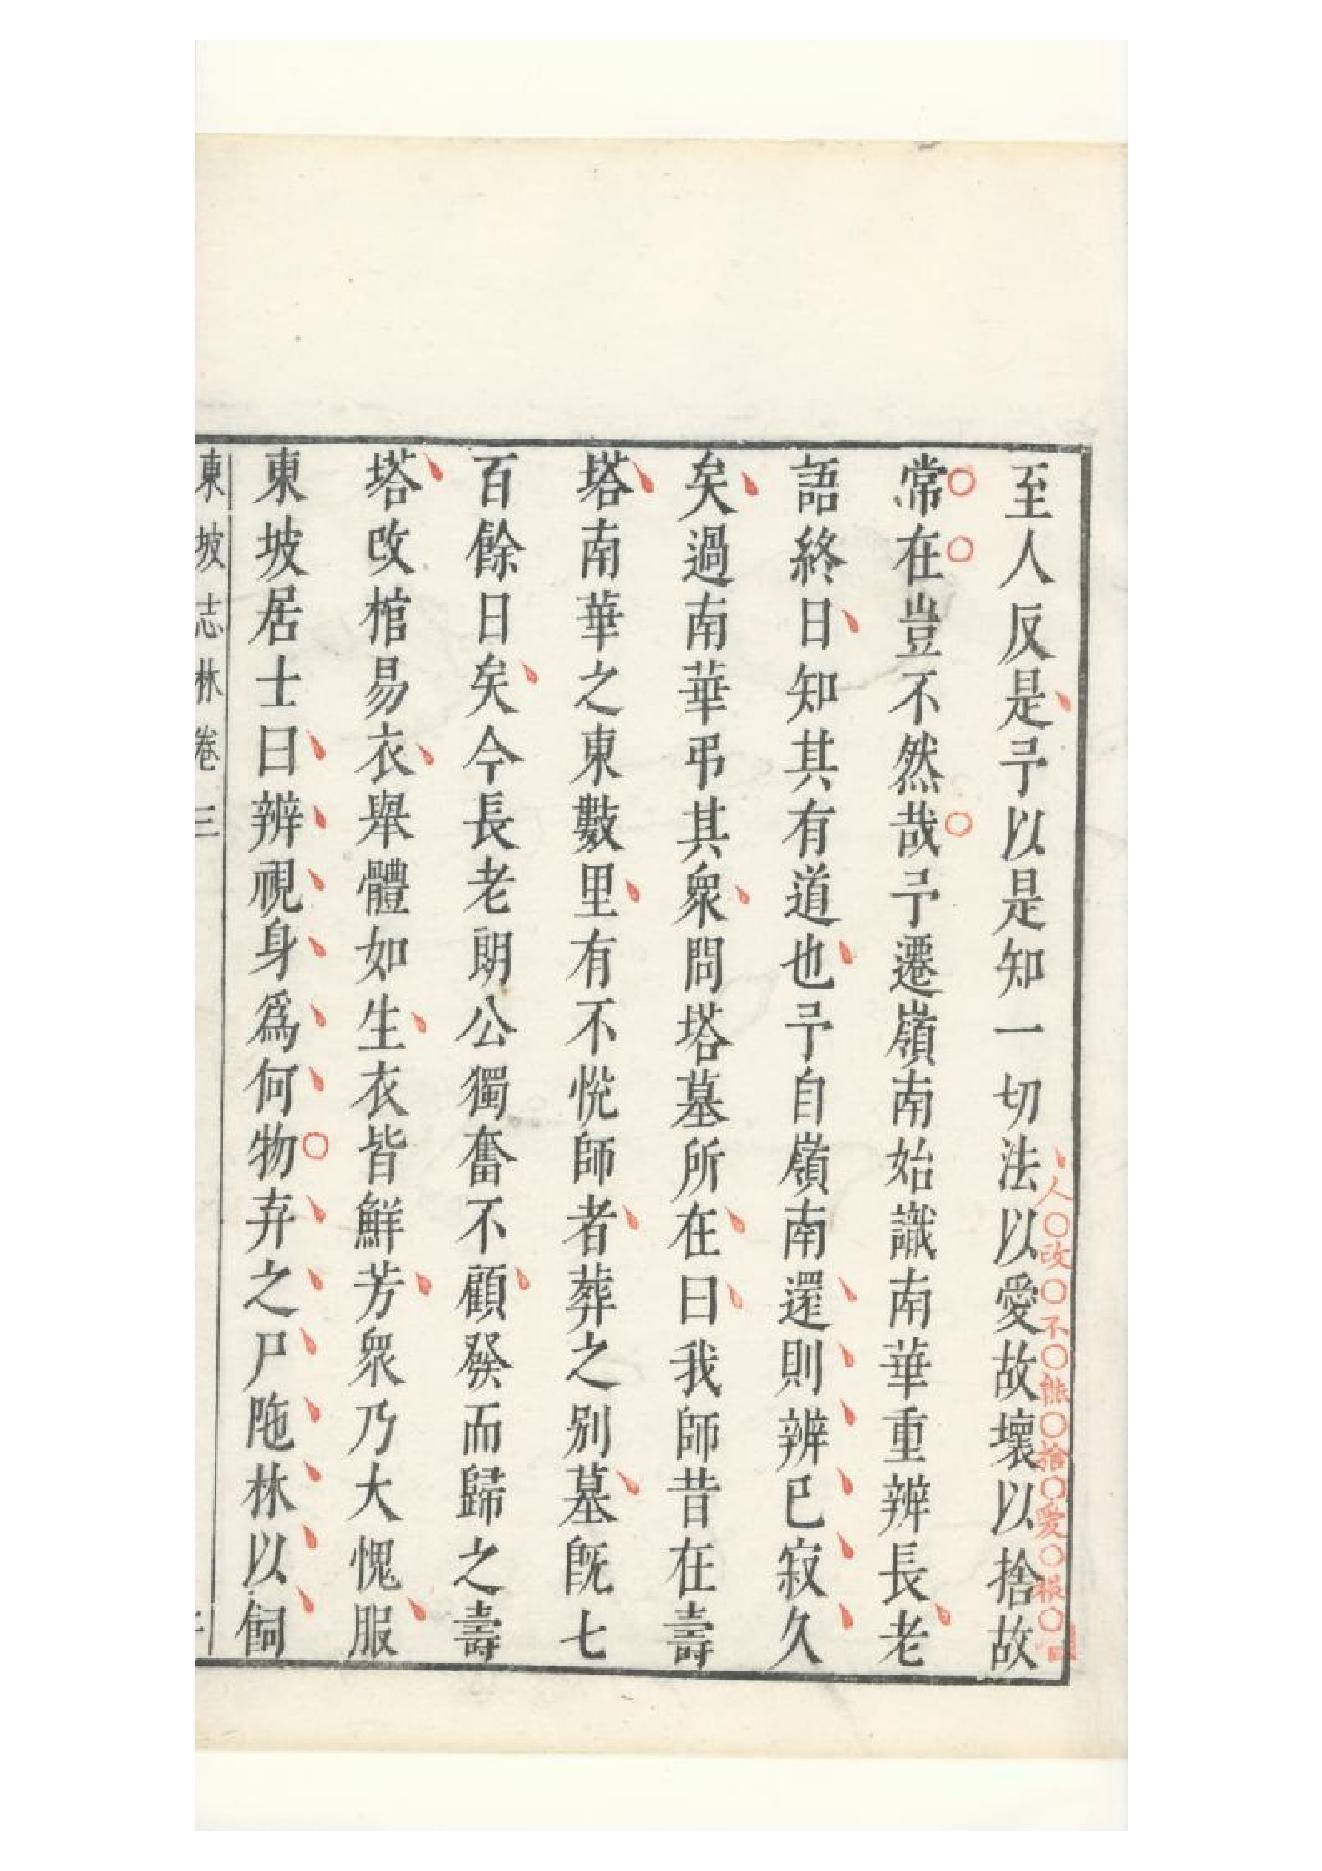 至人反是予以是知一切法以愛故壞以捨故
人○改○不○能○捨○愛○根○
常在豈不然哉予遷嶺南始識南華重辨長老
語終日知其有道也予自嶺南還則辨已寂久
矣過南華弔其衆問塔墓所在曰我師昔在壽
塔南華之東數里有不悅師者葬之別墓旣七
百餘日矣今長老朗公獨奮不顧發而歸之壽
塔改棺易衣舉體如生衣皆鮮芳衆乃大愧服
東坡居士曰辨視身爲何物弃之尸陁林以飼
東坡志林卷三